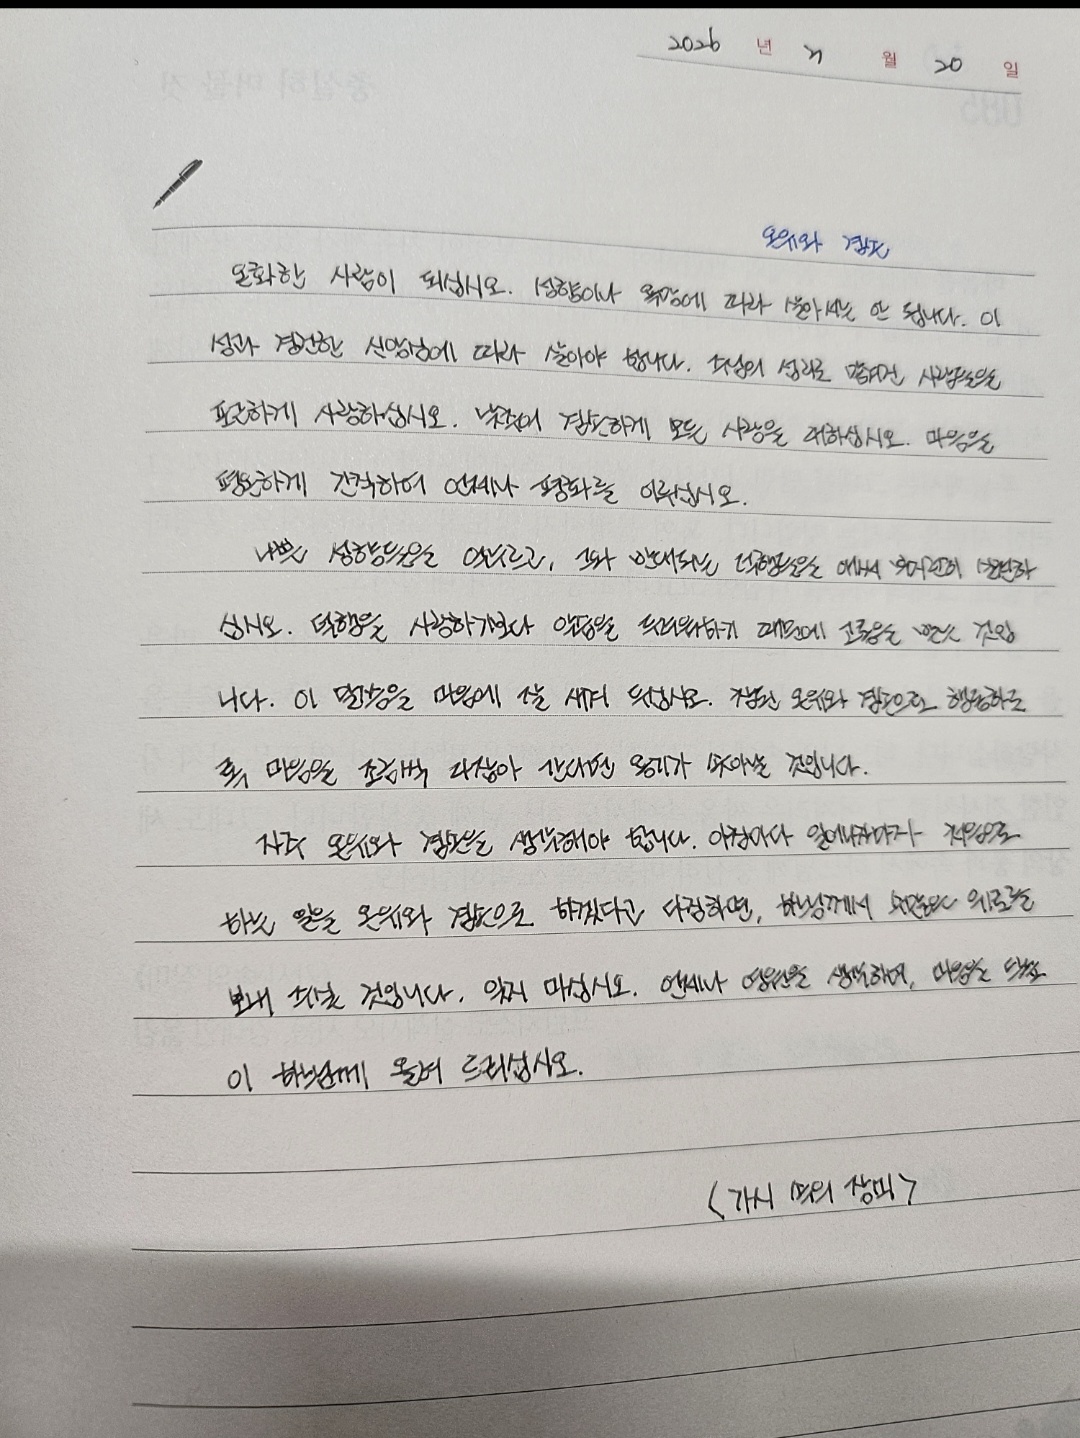 2026 년 4 월 20 일
온유와 겸손
온화한 사람이 되십시오. 성향이나 욕망에 따라 살아서는 안 됩니다. 이
성과 경건한 신앙심에 따라 살아야 합니다. 주님의 섭리로 맡겨진 사람들을
포근하게 사랑하십시오. 낮추어 겸손하게 모든 사람을 대하십시오. 마음을
평온하게 간직하여 언제나 평화를 이루십시오.
나쁜 성향들은 억누르고, 그와 반대되는 덕행들을 애써 부지런히 실천하
십시오. 덕행을 사랑하기보다 악습을 두려워하기 때문에 고통을 받는 것입
니다. 이 말씀을 마음에 잘 새겨 두십시오. 참된 온유와 겸손으로 행동하도
록 마음을 조금씩 다잡아 간다면 용기가 솟아날 것입니다.
자주 온유와 겸손을 생각해야 합니다. 아침마다 일어나자마자 처음으로
하는 일을 온유와 겸손으로 하겠다고 다짐하면, 하느님께서 위로를
보내 주실 것입니다. 잊지 마십시오. 언제나 영원을 생각하며, 마음을
이 하느님께 올려 드리십시오.
<가시 속의 장미>